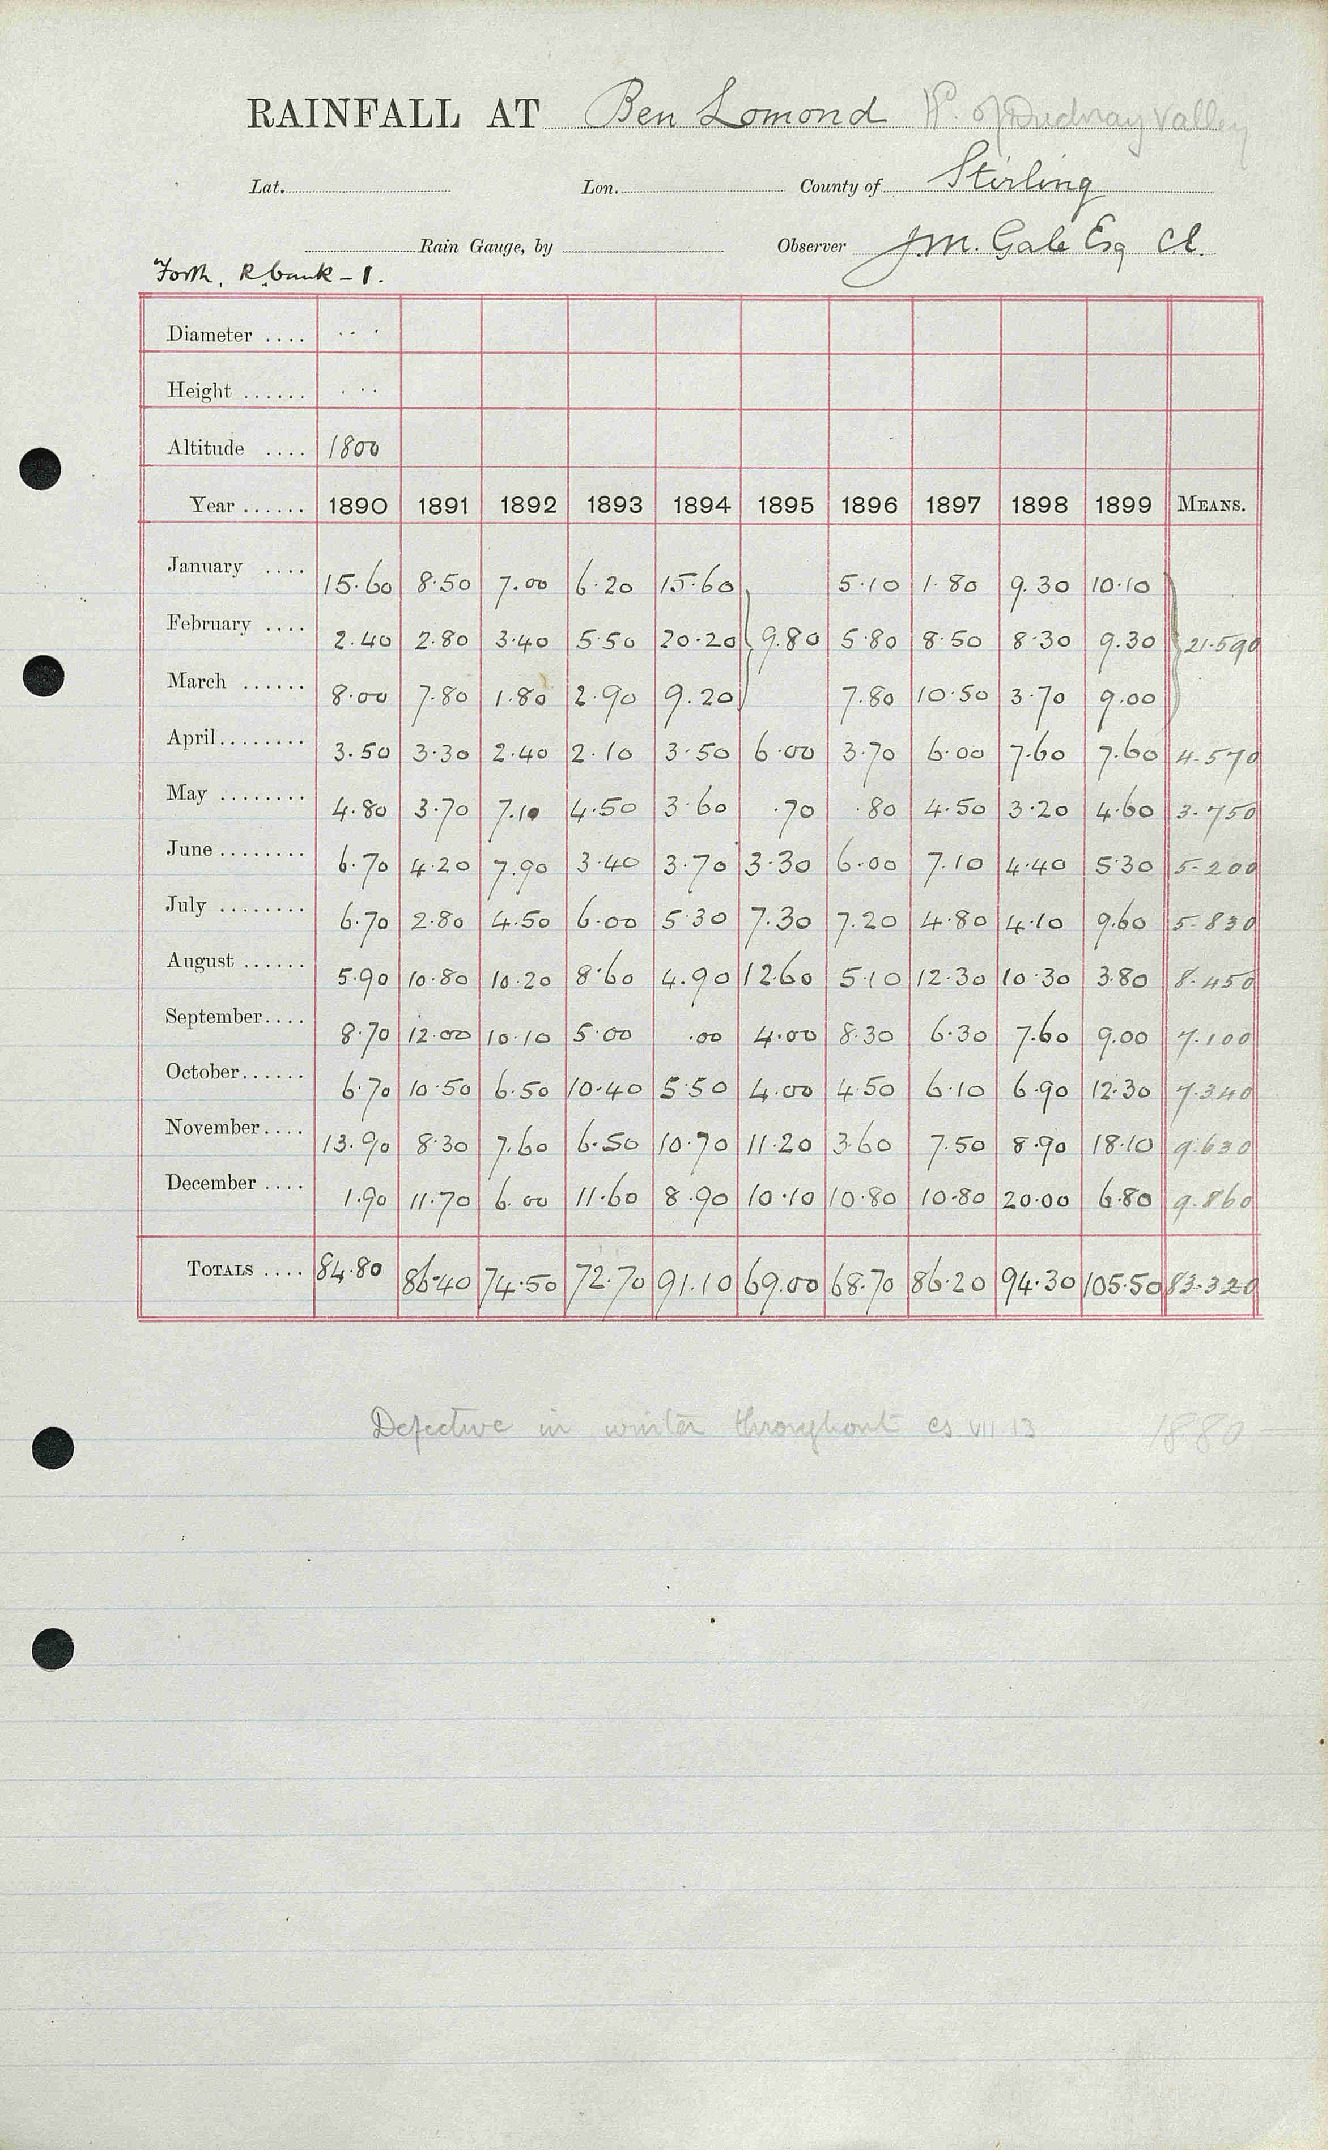 RAINFALL AT Ben Lomond of valley
Lat. Lon. County of Stirling
Rain Gauge, by Observer J.M. Gale Esq C.E.
Forth, R.bank - 1.
Diameter .... ...
Height ...... ...
Altitude .... 1800
Year ...... 1890 1891 1892 1893 1894 1895 1896 1897 1898 1899 MEANS.
January .... 15.60 8.50 7.00 6.20 15.60 5.10 1.80 9.30 10.10
February .... 2.40 2.80 3.40 5.50 20.20 } 9.80 5.80 8.50 8.30 9.30 } 21.590
March ...... 8.00 7.80 1.80 2.90 9.20 7.80 10.50 3.70 9.00
April ........ 3.50 3.30 2.40 2.10 3.50 6.00 3.70 6.00 7.60 7.60 4.570
May ........ 4.80 3.70 7.10 4.50 3.60 .70 .80 4.50 3.20 4.60 3.750
June ........ 6.70 4.20 7.90 3.40 3.70 3.30 6.00 7.10 4.40 5.30 5.200
July ........ 6.70 2.80 4.50 6.00 5.30 7.30 7.20 4.80 4.10 9.60 5.830
August ...... 5.90 10.80 10.20 8.60 4.90 12.60 5.10 12.30 10.30 3.80 8.450
September.... 8.70 12.00 10.10 5.00 .00 4.00 8.30 6.30 7.60 9.00 7.100
October...... 6.70 10.50 6.50 10.40 5.50 4.00 4.50 6.10 6.90 12.30 7.340
November.... 13.90 8.30 7.60 6.50 10.70 11.20 3.60 7.50 8.90 18.10 9.630
December .... 1.90 11.70 6.00 11.60 8.90 10.10 10.80 10.80 20.00 6.80 9.860
TOTALS .... 84.80 86.40 74.50 72.70 91.10 69.00 68.70 86.20 94.30 105.50 83.320
Defective in winter throughout CS VII 13 1880